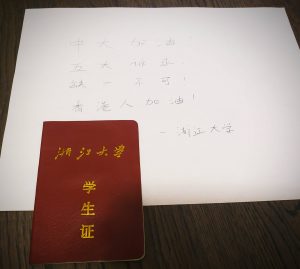 中大加油！
五大诉求
缺一不可！
香港人加油！
—浙江大学
浙江大学
学生证